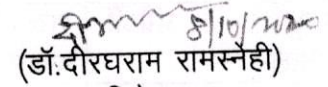 8/10/2020
(डॉ.दीरघराम रामस्नेही)